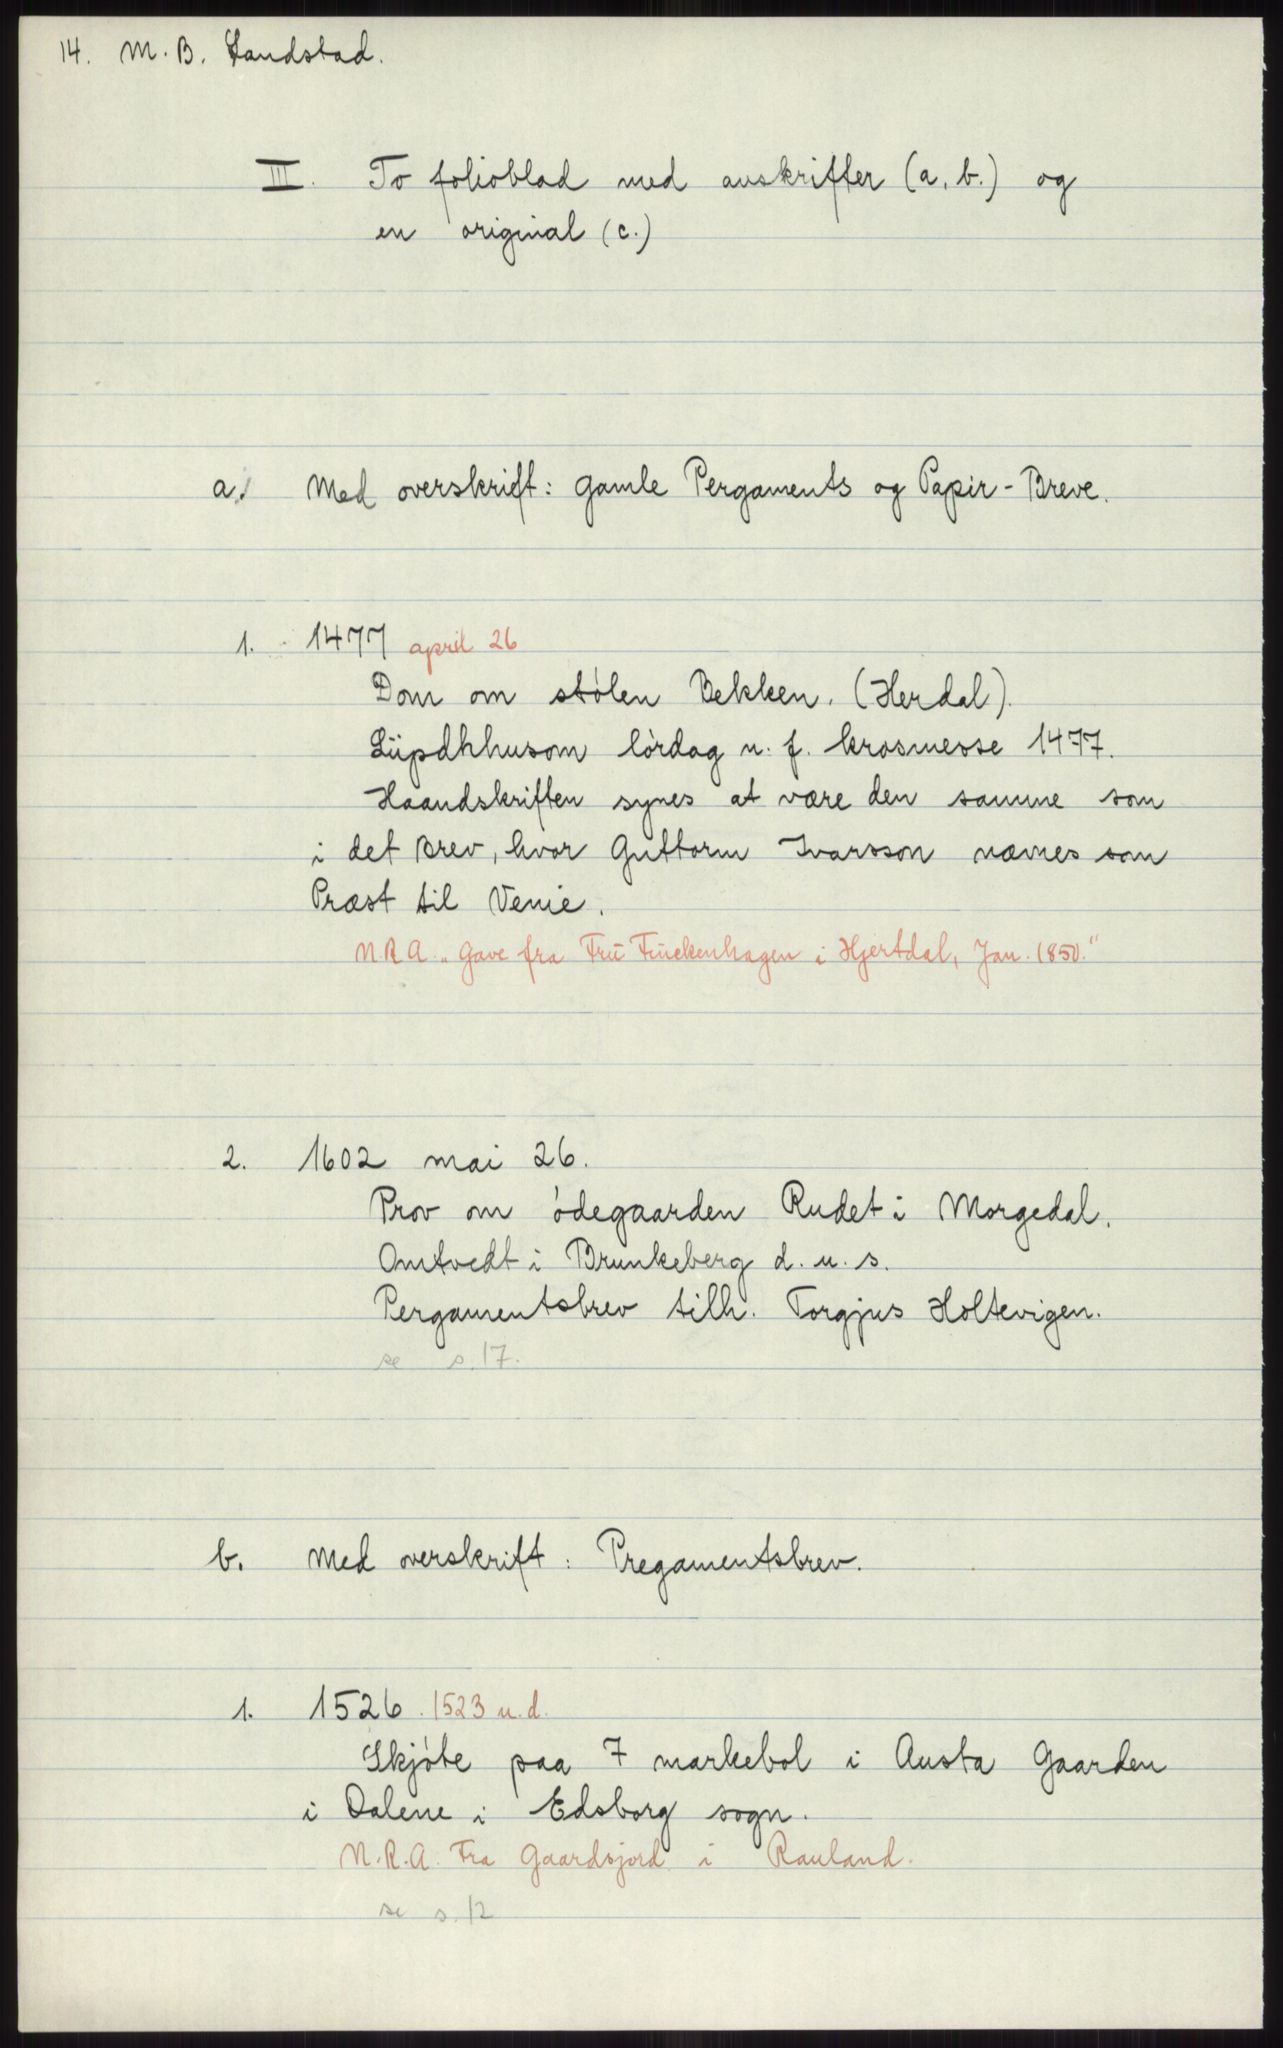 14. M. B. Landstad.
III. To folioblad med avskrifter (a, b.) og
en original (c.)
a. Med overskrift: Gamle Pergaments og Papir-Breve.
1. 1477 april 26
Dom om stølen Bekken. (Herdal).
lørdag n. f. krosmesse 1477.
Haandskriften synes at være den samme som
i det Brev, hvor Guttorm Ivarsson nævnes som
Præst til Venie.
N.R.A. „Gave fra Frū Fūckenhagen i Hjertdal, Jan. 1850."
2. 1602 mai 26.
Prov om ødegaarden Rudet i Morgedal.
Omtvedt i Brunkeberg d. u. s.
Pergamentsbrev tilh. Torgjus Holtevigen.
se s. 17.
b. Med overskrift: Pregamentsbrev.
1. 1526. 1523 u. d.
Skjøte paa 7 markebol i Austa Gaarden
i Dalene i Edsborg sogn.
N.R.A. Fra Gaardsjord i Rauland.
se s. 12